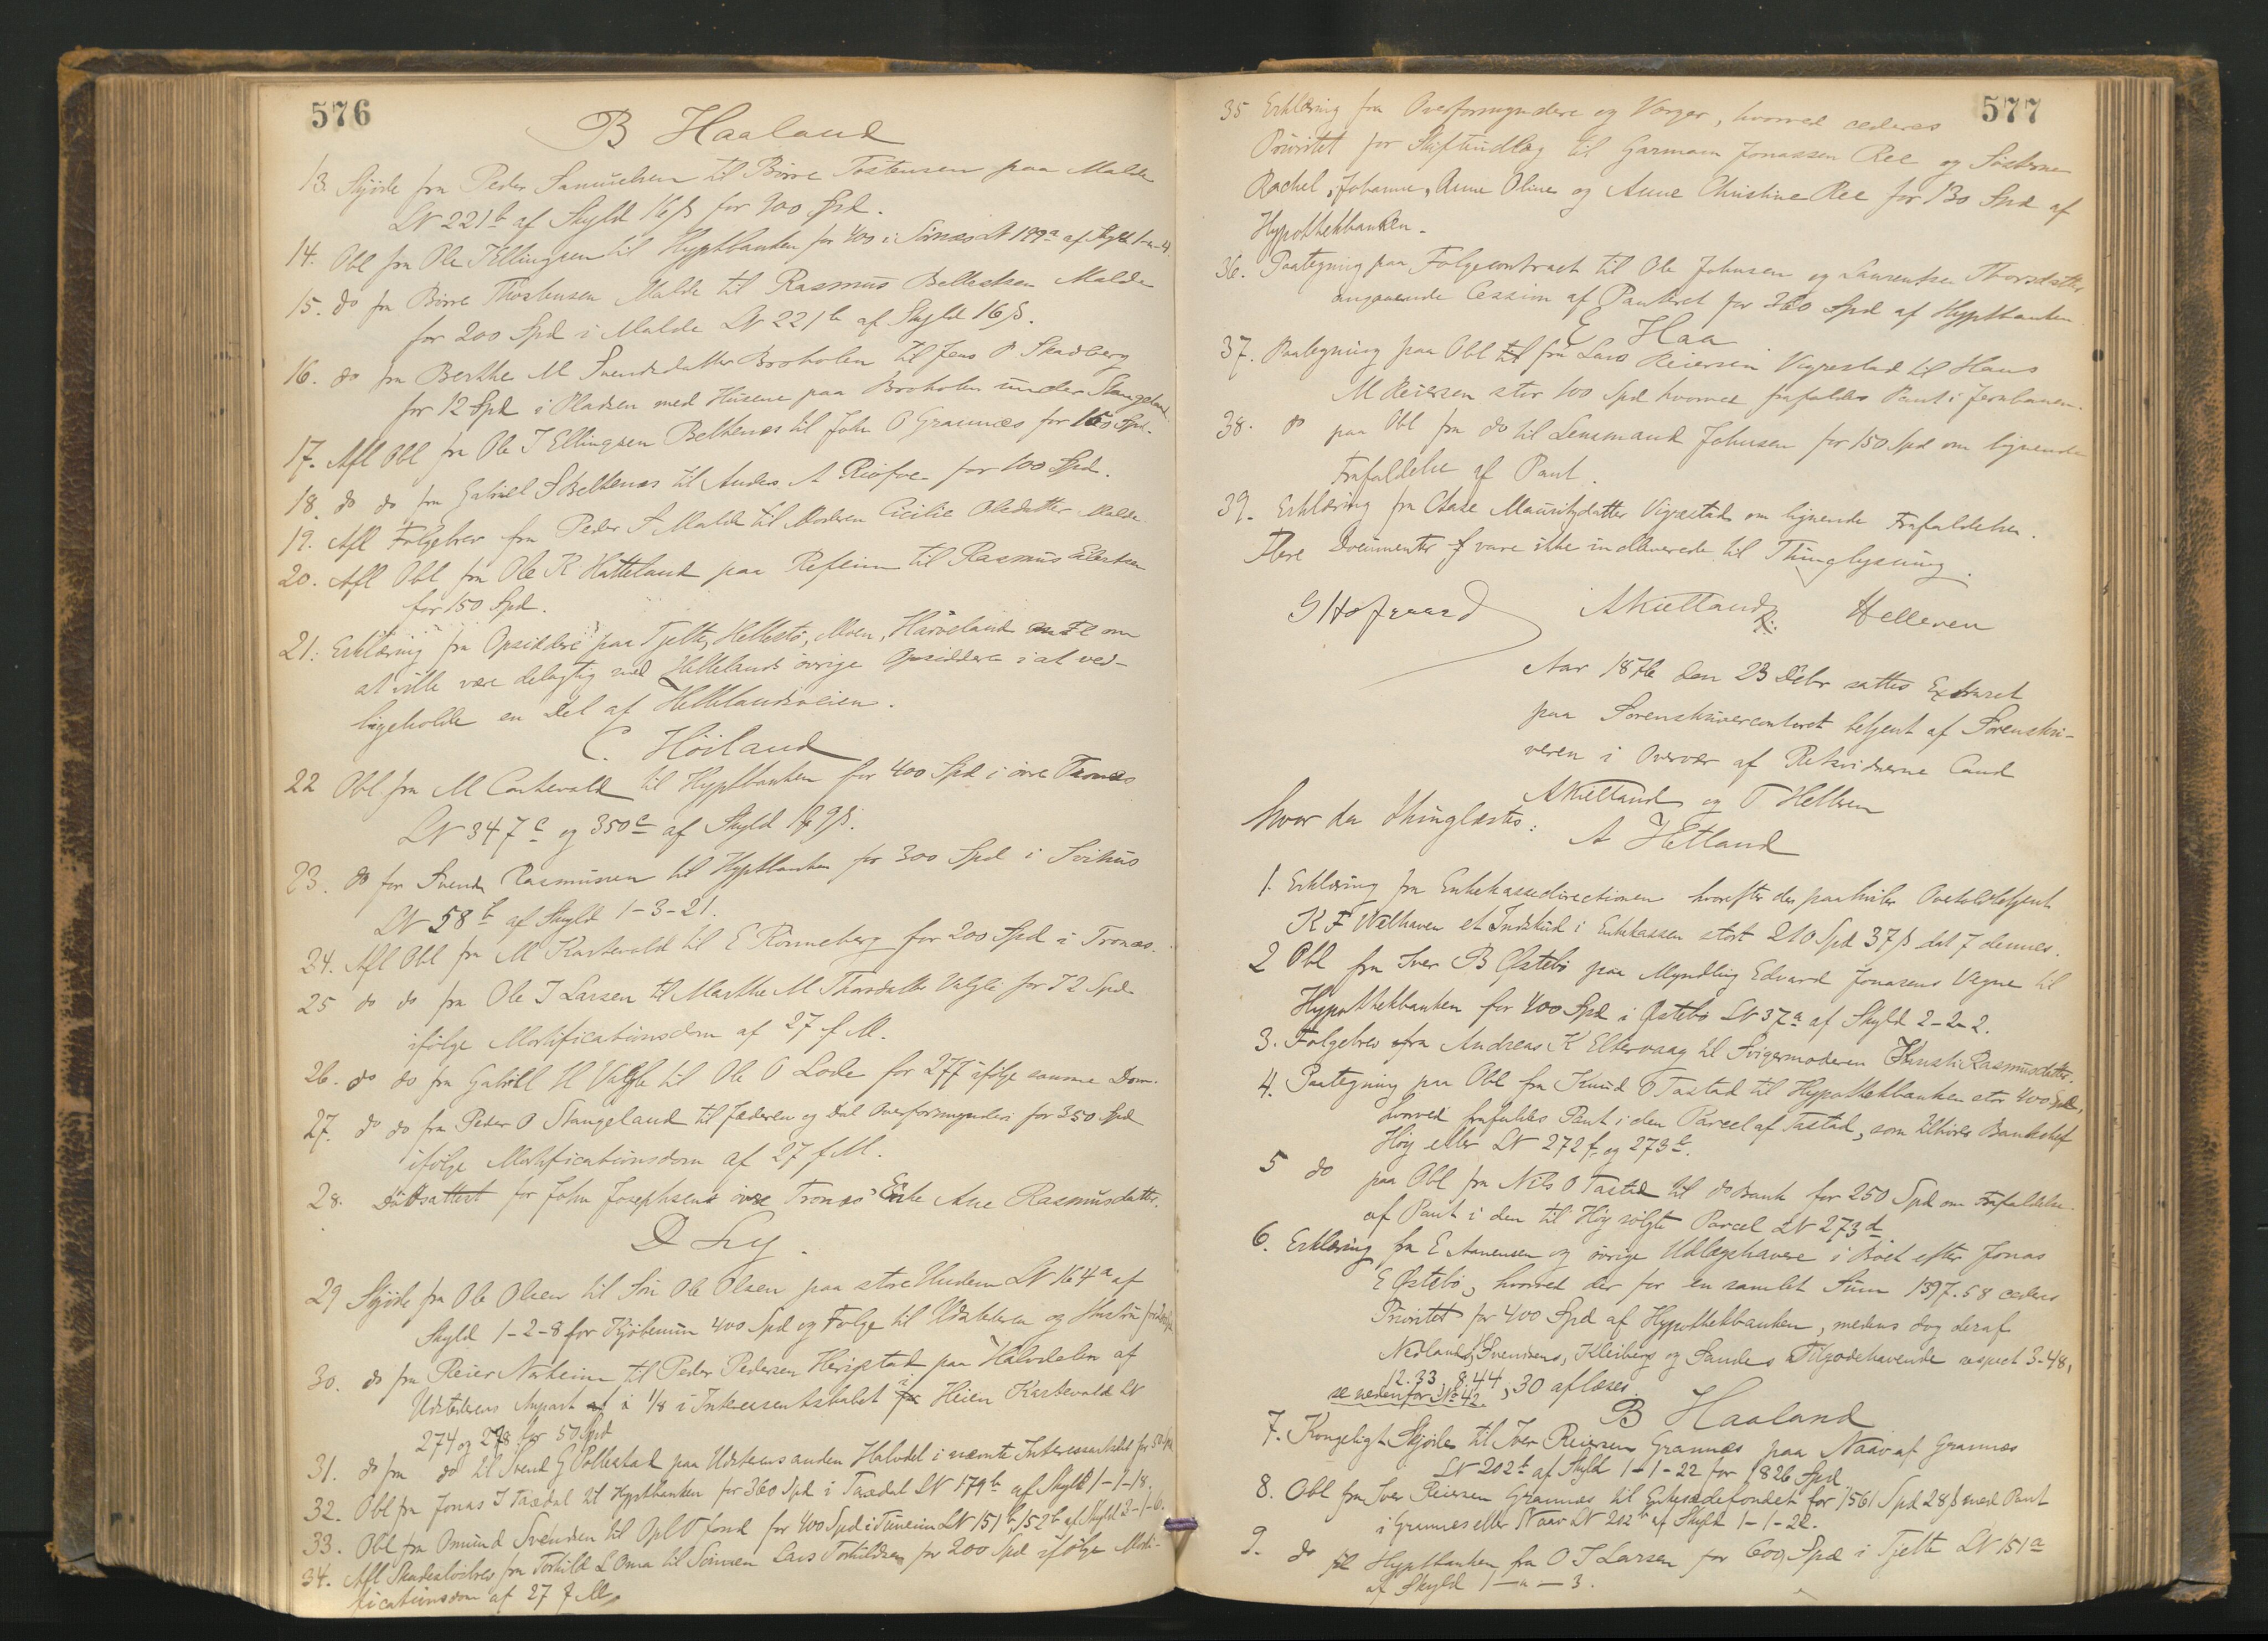 576
B Haaland
13. Skjöde fra Peder Samuelsen til Börre Tostensen paa Malde
LN 221b af Skyld 16ß for 900 Spd.
14. Obl fra Ole T Ellingsen til Hyptbanken for 400 i Sömæs LN 199a af Skyld 1-"-4.
15. do fra Börre Thostensen Malde til Rasmus Malde
for 200 Spd i Malde LN 221b af Skyld 16ß.
16. do fra Berthe M Svendsdatter Broholen til Jens P Skadberg
for 12 Spd i Pladsen med Husene paa Broholen under Stangeland.
17. Afl Obl fra Ole T Ellingsen Beltenæs til John O Grannæs for Spd.
18. do do fra Gabriel S Beltenæs til Anders A Risfoe for 100 Spd.
19. Afl Folgebrev fra Peder S Malde til Moderen Cicilie Olsdatter Malde.
20. Afl Obl fra Ole K Hatteland paa Refheim til Rasmus Eilertsen
for 150 Spd.
21. Erklæring fra Opsiddere paa Tjelte, Hellestö, Moen, Harveland om
at ville være delagtig med Hellelands övrige Opsiddere i at ved-
ligeholde en Del af Hellelandsveien.
C. Höiland
22 Obl fra M Cartevold til Hyptbanken for 400 Spd i övre Tronæs
LN 347c og 350c af Skyld 9ß.
23. do for Svend Rasmussen til Hyptbanken for 300 Spd i Svihus
LN 58b af Skyld 1-3-21.
24. Afl Obl fra M Kartevold til E Rönneberg for 200 Spd i Tronæs.
25 do do fra Ole T Larsen til Marthe M Thorsdatter Valgli for 72 Spd
ifölge Mortificationsdom af 27 f M.
26. do do fra Gabriel H Valgli til Ole O Lode for 277 ifölge samme Dom.
27. do do fra Peder O Stangeland til Jæderen og Dal Overformynderi for 350 Spd
ifölge Mortificationsdom af 27 f M.
28. Dödsattest for John Josephsens övre Tronæs Enke Ane Rasmusdatter.
D Ly.
29 Skjöde fra Ole Olsen til Sön Ole Olsen paa store Undem LN 164a af
Skyld 1-2-8 for Kjöbesum 400 Spd og Folge til Udstederen og Hustru
30. do fra Reier Norheim til Peder Pedersen Herigstad paa Halvdelen af
Udstederens Anpart i 1/8 i Interessentskabet i Heien Kartevold LN
274 og 278 for 50 Spd
31. do fra do til Svend G Pollestad paa Udstederens anden Halvdel i nævnte Interessentskab for 50 Spd
32. Obl fra Jonas T Taxdal til Hyptbanken for 360 Spd i Taxdal LN 179b af Skyld 1-1-18.
33. Obl fra Omund Svendsen til Opl O fond for 400 Spd i Tuneim LN 151b, 152b af Skyld 3-1-6.
34. Afl Skadeslösbrev fra Torkild L Oma til Sönnen Lars Torkildsen for 200 Spd ifölge Morti-
ficationsdom af 27 f M.
577
35 Erklæring fra Overformyndere og Værger, hvorved cederes
Prioritet for Skifteudlæg til Garmann Jonassen Ree og Söstrene
Rachel, Johanne, Anne Oline og Anne Christine Ree for 130 Spd af
Hypothekbanken.
36. Paategning paa Folgecontract til Ole Johnsen og Laurentse Thorsdatter
angaaende Cession af Panteret for 260 Spd af Hyptbanken.
E Haa
37. Paategning paa Obl til fra Lars Reiersen Vigrestad til Hans
M Reiersen stor 100 Spd hvorved frafaldes Pant i Jernbanen.
38. do paa Obl fra do til Lensmand Johnsen for 150 Spd om lignende
Frafaldelse af Pant.
39. Erklæring fra Aase Mauritzdatter Vigrestad om lignende Frafaldelse.
Flere Documenter vare ikke indleverede til Thinglysning.
G Hofgaard A Kielland Helleren
Aar 1876 den 23 Debr sattes Extraret
paa Sorenskrivercontoret betjent af Sorenskri-
veren i Overvær af Retsvidnerne Cand
A Kielland og T Helleren
hvor da thinglæstes:
A Hetland
1. Erklæring fra Enkekassedirectionen hvorefter der paahviler Overtoldbetjent
K F Welhaven et Indskud i Enkekassen stort 210 Spd 37ß dat 7 dennes.
2 Obl fra Iver B Östebö paa Myndling Edvard Jonasens Vegne til
Hypothekbanken for 400 Spd i Östebö LN 37a af Skyld 2-2-2.
3. Folgebrev fra Andreas K Eltervaag til Svigermoderen Rasmusdatter.
4. Paategning paa Obl fra Knud O Tastad til Hypothekbanken stor 400 Spd,
hvorved frafaldes Pant i den Parcel af Tastad, som tilhörer Bankchef
Höy eller LN 272f og 273c.
5 do paa Obl fra Nils O Tastad til do Bank for 250 Spd om Frafaldelse
af Pant i den til Höy solgte Parcel LN 273d
6. Erklæring fra E Aanensen og övrige Udlægshavere i Boet efter Jonas
E Östebö, hvorved der for en samlet Sum 1397.58 cederes
Prioritet for 400 Spd af Hypothekbanken, medens dog deraf
Nedlands, Svendsens, Kleibergs og Sandes Tilgodehavende respect 3-48,
12.33, 8.44, 30 aflæses.
se nedenfor No 42.
B Haaland
7. Kongeligt Skjöde til Iver Reiersen Grannæs paa Naav af Grannæs
LN 202b af Skyld 1-1-22 for 1826 Spd.
8. Obl fra Iver Reiersen Grannæs til Enkesædefondet for 1561 Spd 28ß med Pant
i Grannæs eller Naav LN 202b af Skyld 1-1-22.
9. do til Hyptbanken fra O T Larsen for 600 Spd i Tjelte LN 151a
af Skyld 1-"-3.